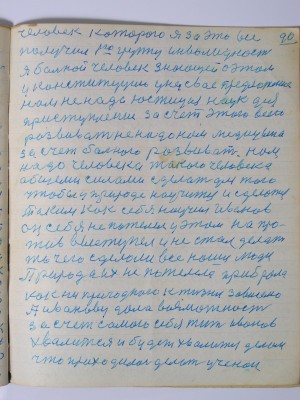 человек которого я за это все 90
получил 1ю группу инвалидность
я больной человек знающей о этом
у конституции у нас вас предложение
нам не надо юстиция наук для
приступления за счет этого всего
развиват не надо нам медицина
за счет болного развиват. нам
надо человека такого человека
общеми силами сделат для того
чтобы в природе научит и сделат
таким как себя научил Иванов
он себя не пожелел у этом на про-
тив выступил и не стал делат
то чего сделали все наши люди
Природа их не пожелела прибрала
как ни пригодного к жизни за
А Иванову дала возможность
за счет самого себя жит Иванов
хвалится и будет хвалится делом
что приходилос делат ученой